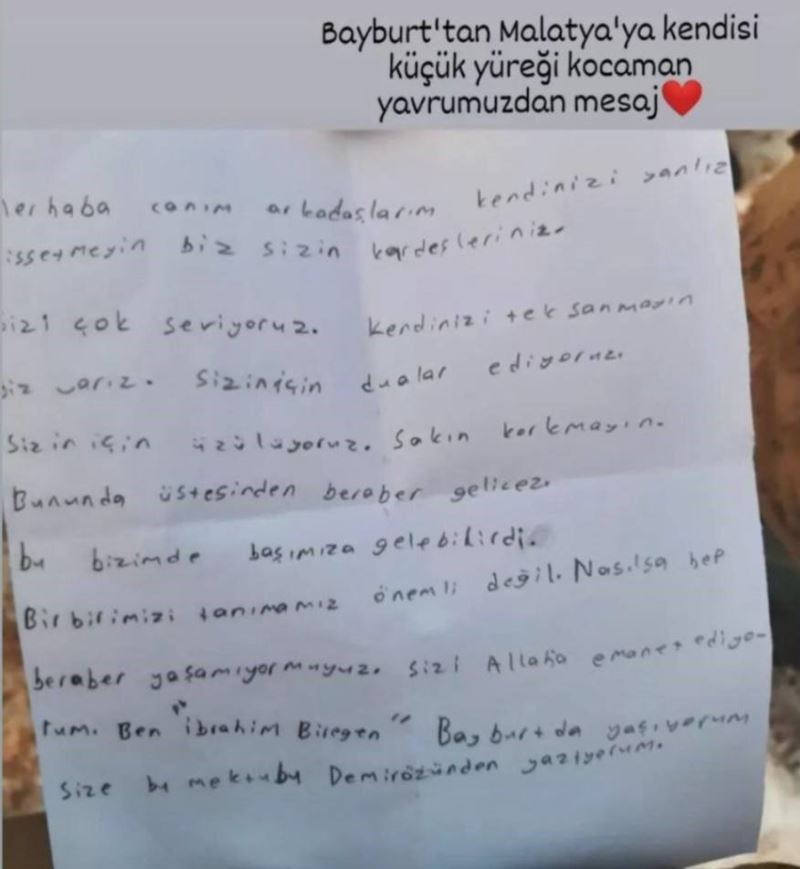 Bayburt'tan Malatya'ya kendisi
küçük yüreği kocaman
yavrumuzdan mesaj❤️
erhaba canım arkadaşlarım kendinizi yanlız
issetmeyin biz sizin kardeşleriniz.
izi çok seviyoruz. Kendinizi tek sanmayın
iz varız. Siziniçin dualar ediyoruz.
Sizin için üzülüyoruz. Sakın korkmayın.
Bununda üstesinden beraber gelicez.
bu bizimde başımıza gelebilirdi.
Bir birimizi tanımamız önemli değil. Nasılsa hep
beraber yaşamıyormuyuz. Sizi Allaha emanet ediyo-
rum. Ben "ibrahim Biregen" Bayburtda yaşıyorum
size bu mektubu Demirözünden yazıyorum.